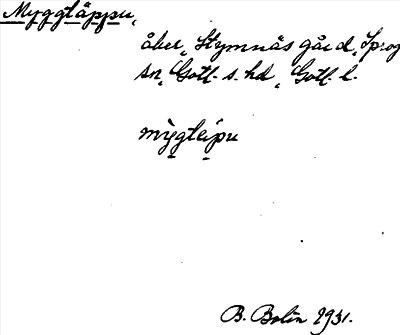 Myggtäppu,
åker, Stymnäs gård, Sprog
sn, Gotl. s. hd, Gotl. l.
mỳgtei̯pu
B. Bolin 1931.